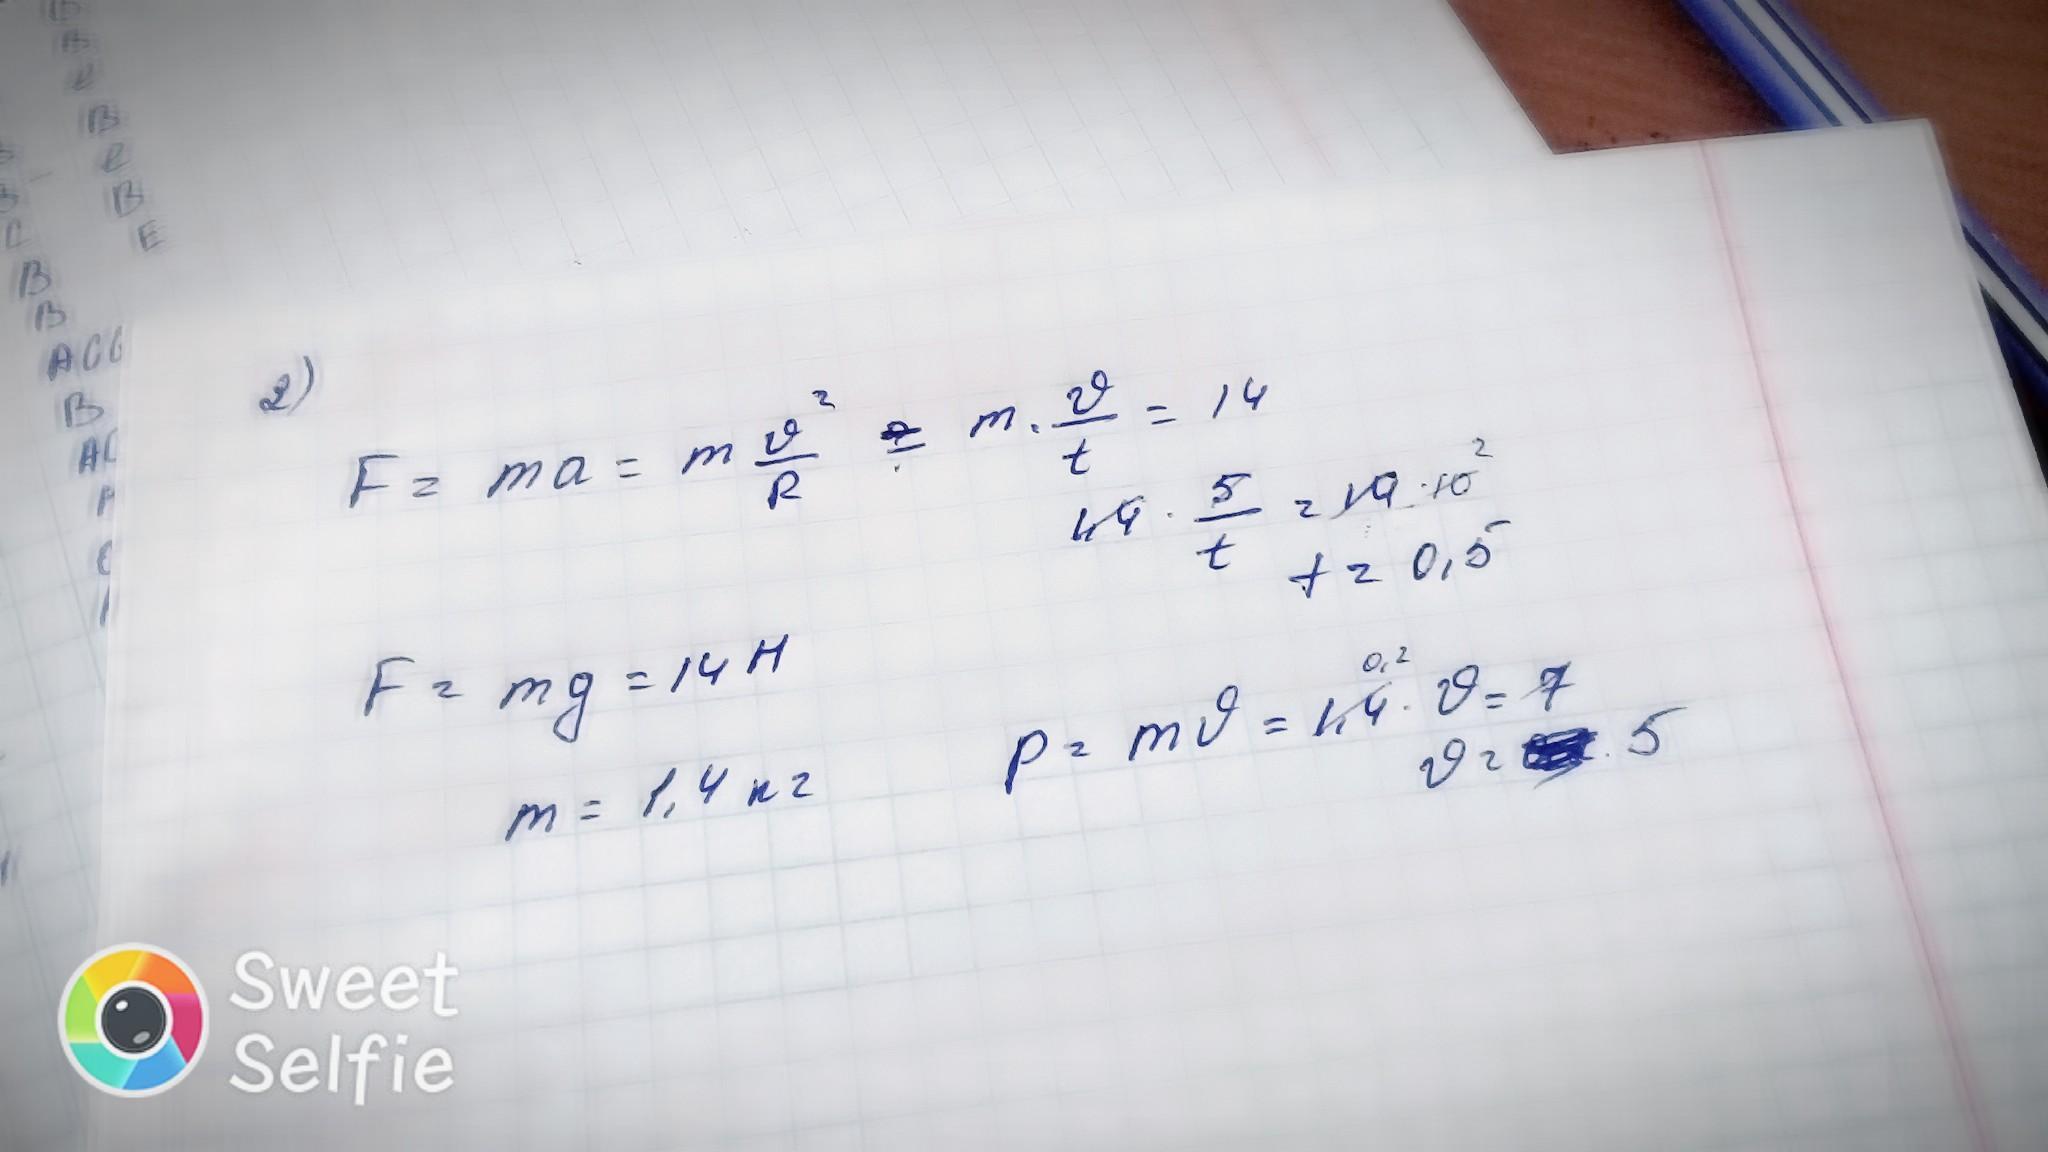 B
B
e
B
e
B
E
C
B
B
ACC
B
AC
2)
F = ma = m ϑ²/R = m · ϑ/t = 14
1,4 · 5/t = 14 · 10 2
t = 0,5
F = mg = 14 Н
m = 1,4 кг
0,2
p = mϑ = 1,4 · ϑ = 7
ϑ = 5
Sweet
Selfie